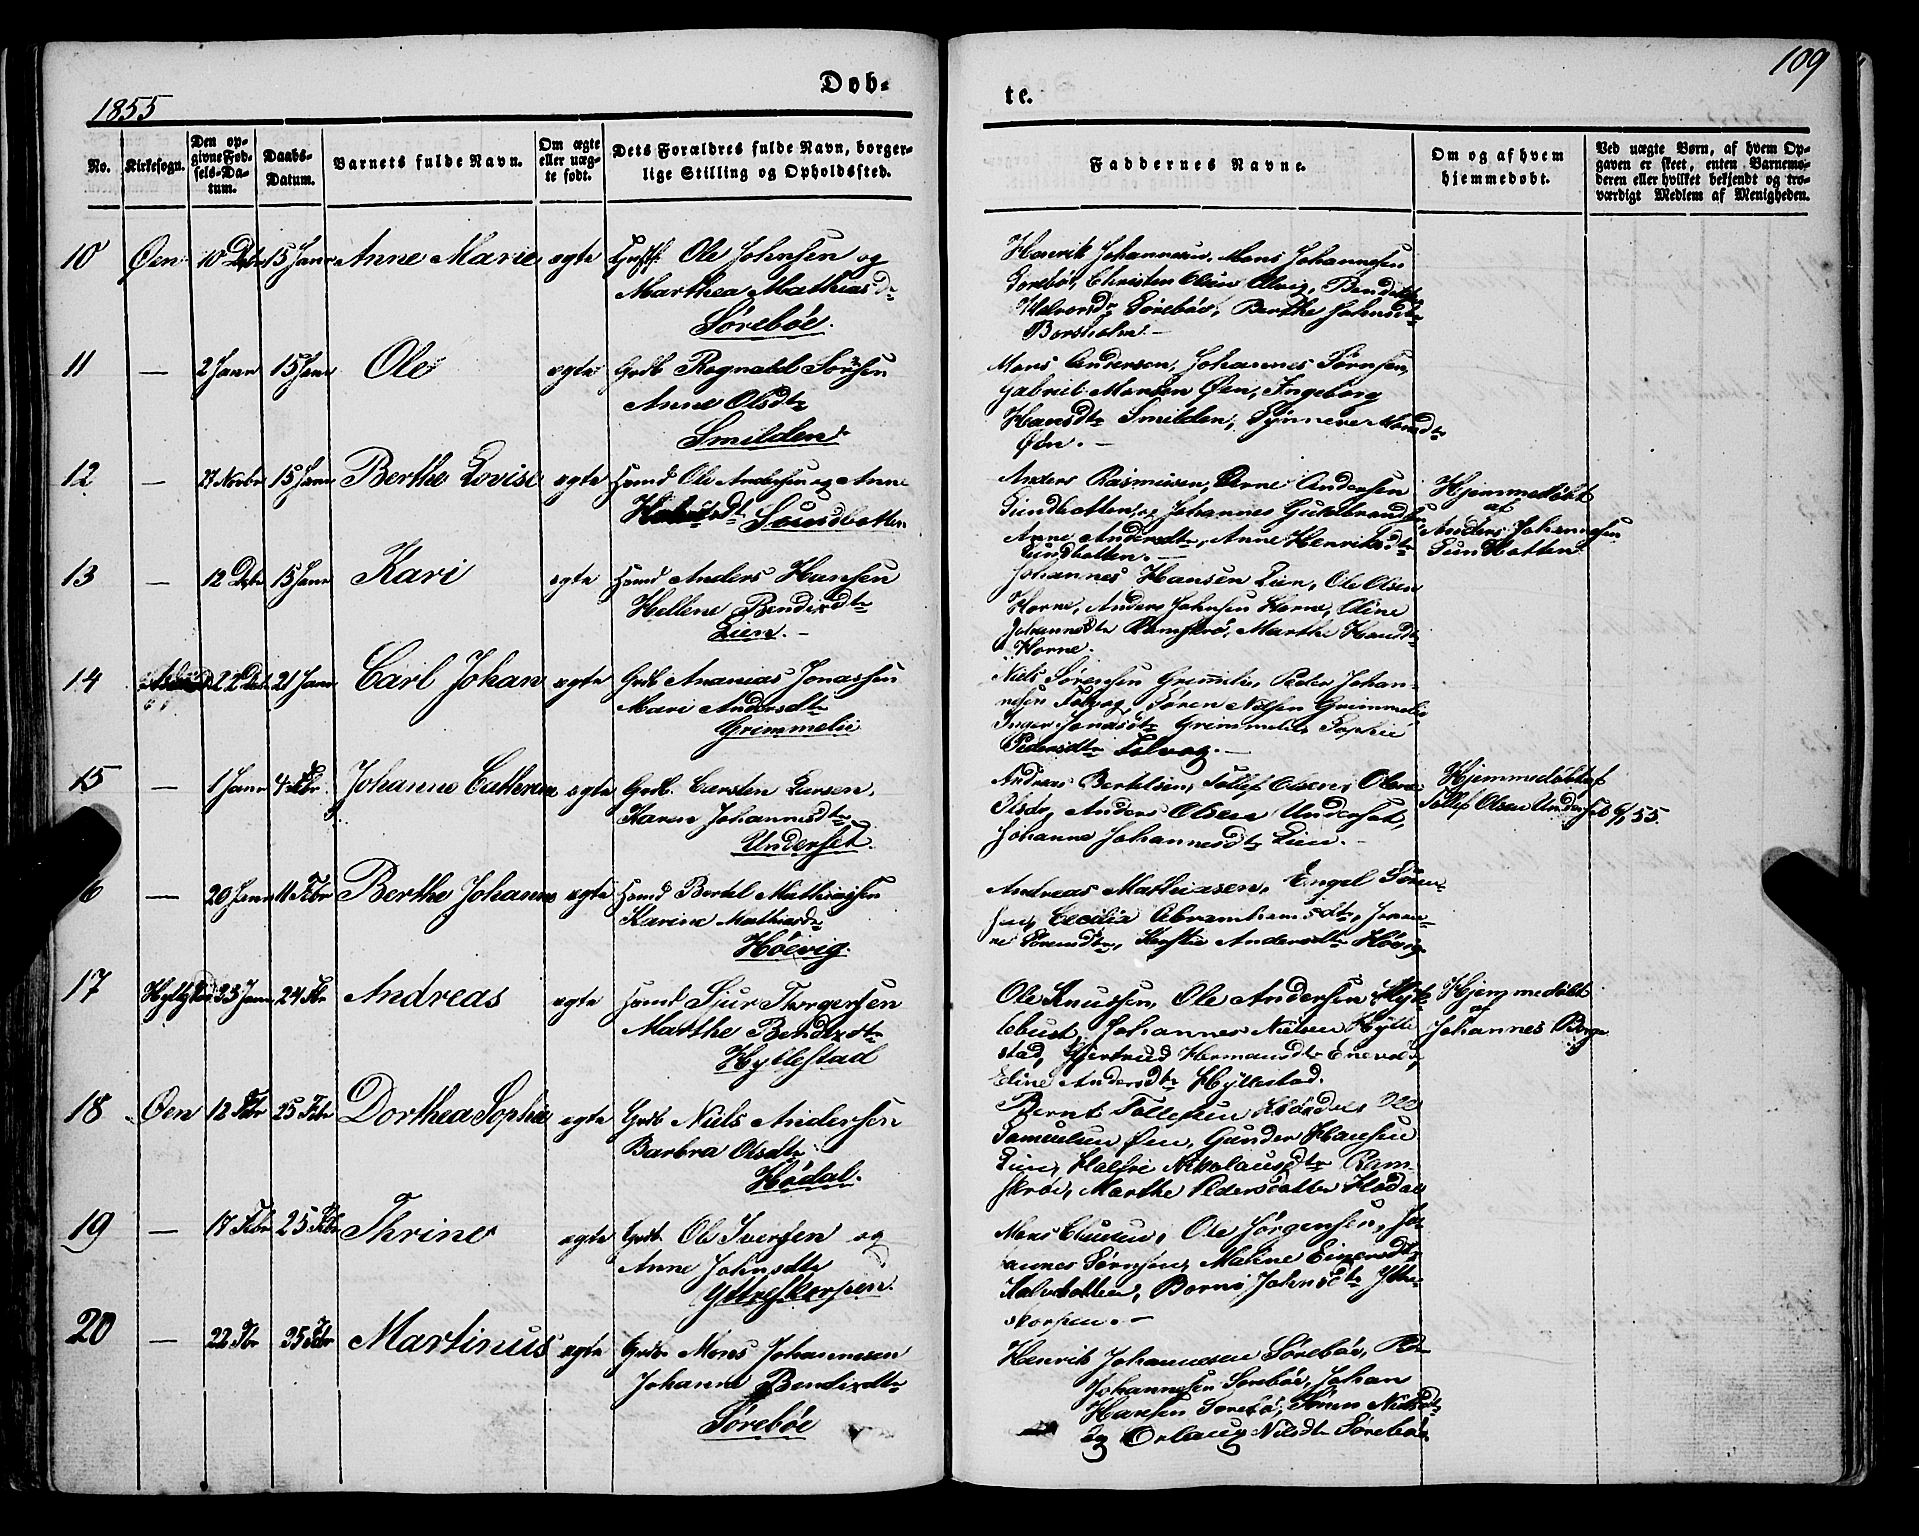 Døb-
te.
109
1855
No.
Kirkesogn.
Den op-
givne Fød-
sels-Da-
tum.
Daabs-
Datum.
Barnets fulde Navn.
Om ægte
eller uæg-
te født.
Dets Forældres fulde Navn, borger-
lige Stilling og Opholdssted.
Faddernes Navne.
Om og af hvem
hjemmedøbt.
Ved uægte Børn, af hvem Op-
gaven er skeet, enten Barnemo-
deren eller hvilket bekjendt og tro-
værdigt Medlem af Menigheden.
10 Øen 10 Dcbr 15 Janr Anne Marie ægte Ole Johnsen og
Marthea Mathiasd.
Sørebøe.
Henrik Johannesen, Mons Johannesen
Sørebø, Christen Olsen Alvig,
Halvorsd. Sørebøe, Berthe Johnsdtr
Borsholm.
11 — 2 Janr 15 Janr Ole ægte Grdb Ragnald
Anne Olsdtr
Smilden
Mons Andersen, Johannes Sørnsen,
Gabriel Monsen Øen, Ingeborg
Hansdtr Smilden, Synneve Monsdtr
Øen. —
12 — 15 Janr Berthe Lovise ægte Huusmd Ole Andersen og Anne
Anders Rasmussen, Arne Andersen
Johannes Guldbrandsen
Anne Andersdtr, Anne Henriksdtr
Hjemmedøbt
af
Anders Johannesen
13 — 12 Dcbr 15 Janr Kari ægte Huusmd Anders Hansen
Hellene Bendixdtr
Lien. —
Johannes Hansen Lien, Ole Olsen
Horne, Anders Johnsen Horne, Oline
Johannesdtr Ramskrø, Marthe Hansdtr
Horne.
14 22 Dcbr 21 Janr Carl Johan ægte Grdb Ananias Jonassen
Mari Andersdtr
Grimmelie
Niels Sørensen Grimmelie, Peder Johan-
nesen Tolvag, Søren Nilsen Grimmelie
Inger Jonasdtr Grimmelie, Sophie
Pedersdtr Tolvag. —
15 — 1 Janr 4 Febr. Johanne Cathrine ægte Grdb. Carsten Larsen,
Karen Johannesdtr
Underset.
Andreas Bertelsen, Tollef Olsen,
Olsdr, Anders Olsen Underset,
Johanne Johannesdtr Lien. —
Hjemmedøbt af
Tollef Olsen Underset 6/1 55.
16 — 20 Janr 11 Febr Berthe Johanne ægte Huusmd Bertel Mathiassen
Karine Mathiasdr
Høevig.
Andreas Mathiasen, Engel Søren-
sen, Cecilia Abrahamsdtr,
Sørensdtr, Kirstie Andersdtr Høvig
17 23 Janr 24 Febr Andreas ægte Huusmd Sjur Thorgersen
Marthe Bendixdtr
Hyllestad
Ole Knussen, Ole Andersen Mykle-
lebust, Johannes Nielsen Hylle-
stad, Gjertrud Hermansdtr
Eline Andersdtr Hyllestad.
Hjemmedøbt
af
Johannes Berge
18 Øen 12 Febr 25 Febr Dorthea Sophie ægte Grdb Niels Andersen
Barbra Olsdtr
Hødal.
Bernt Tollefsen Hødal, Ole
Samuelsen Øen, Gunder Hansen
Lien, Nikolausdtr Ram-
skrøe, Marthe Pedersdatter Hødal
19 — 17 Febr 25 Febr Thrine ægte Grdb Ole Iversen og
Anne Johnsdtr
Yttreskorpen.
Mons Clausen, Ole Jørgensen, Jo-
hannes Sørnsen, Maline Einersdtr
Johnsdtr Yttre-
skorpen. —
20 — 22 Febr 25 Febr Martinus ægte Grdbr Mons Johannesen
Johanne Bendixdtr
Sørebøe
Henrik Johannesen Sørebøe,
Johannesen Sørebøe, Johan
Hansen Sørebø,
og Nilsdtr Sørebøe